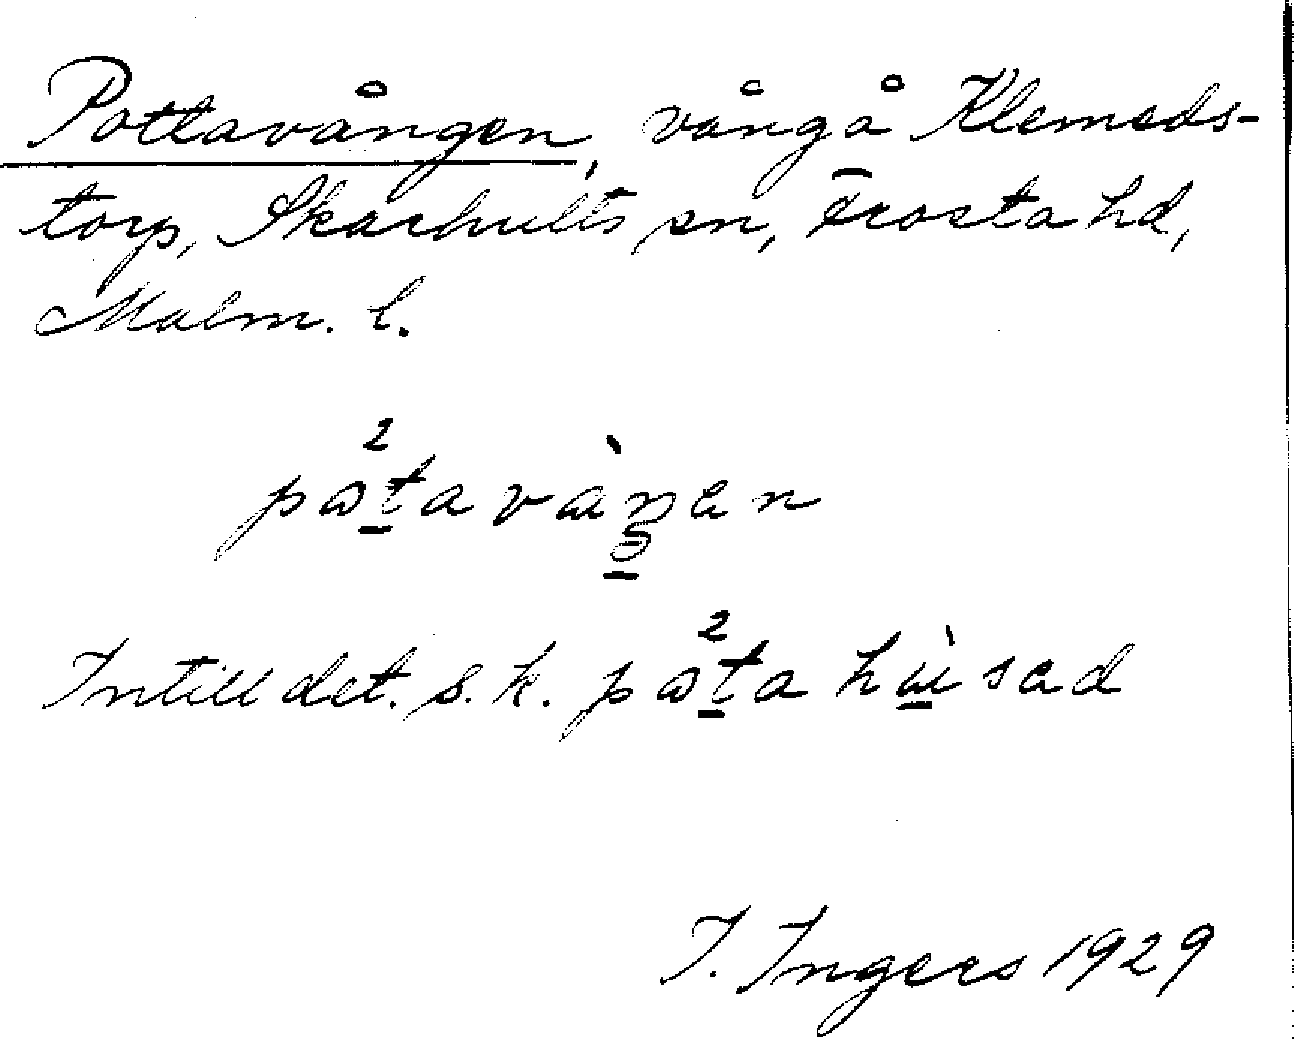 Pottavången, vång å Klemeds-
torp, Skarhults sn, Frosta hd,
Malm. l.
Intill det. s. k.
I. Ingers 1929